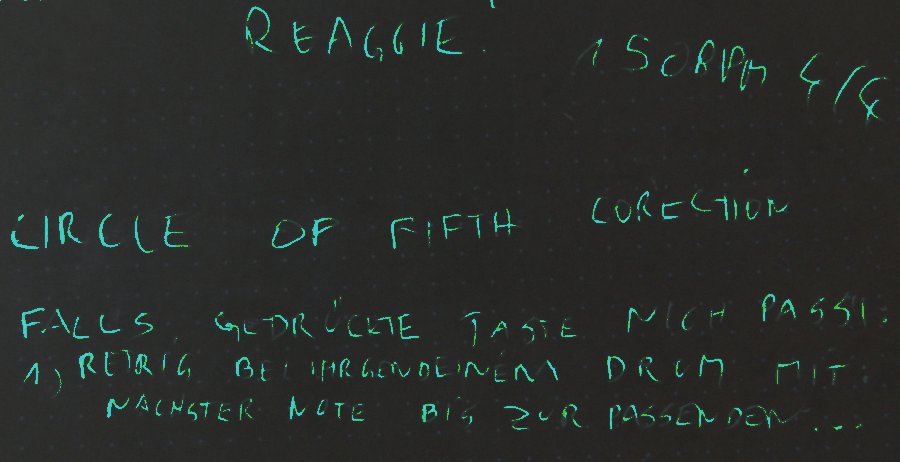 REAGGIE.
150BPM 4/4
CIRCLE OF FIFTH CORECTION
FALLS GEDRÜCKTE TASTE NICH PASST:
1) RETRIG BEI IHRGENDEINEM DRUM MIT
NÄCHSTER NOTE BIS ZUR PASSENDEN...